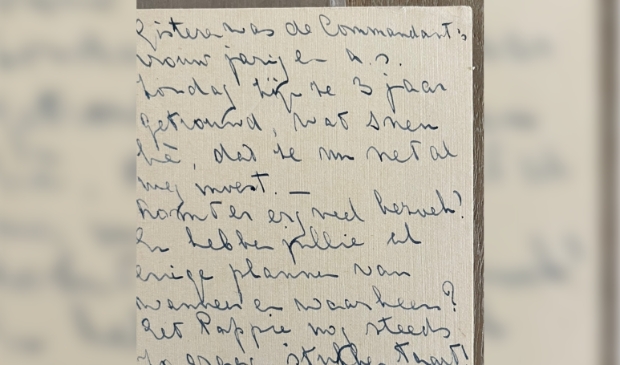 Gisteren was de Commandant's
vrouw jarig en a.s.
Zondag zijn ze 3 jaar
getrouwd, wat sneu
hè, dat ze nu net al
weg moest. —
Komt er erg veel bezoek?
En hebben jullie al
enige plannen van
wanneer en waarheen?
Eet Pappie nog steeds
zo graag stukken taart